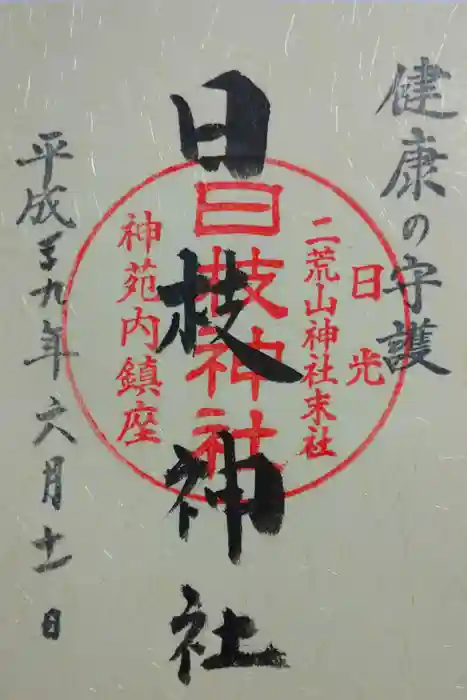 健康の守護
日枝神社
日光
二荒山神社末社
日枝神社
神苑内鎮座
平成二十九年六月十一日